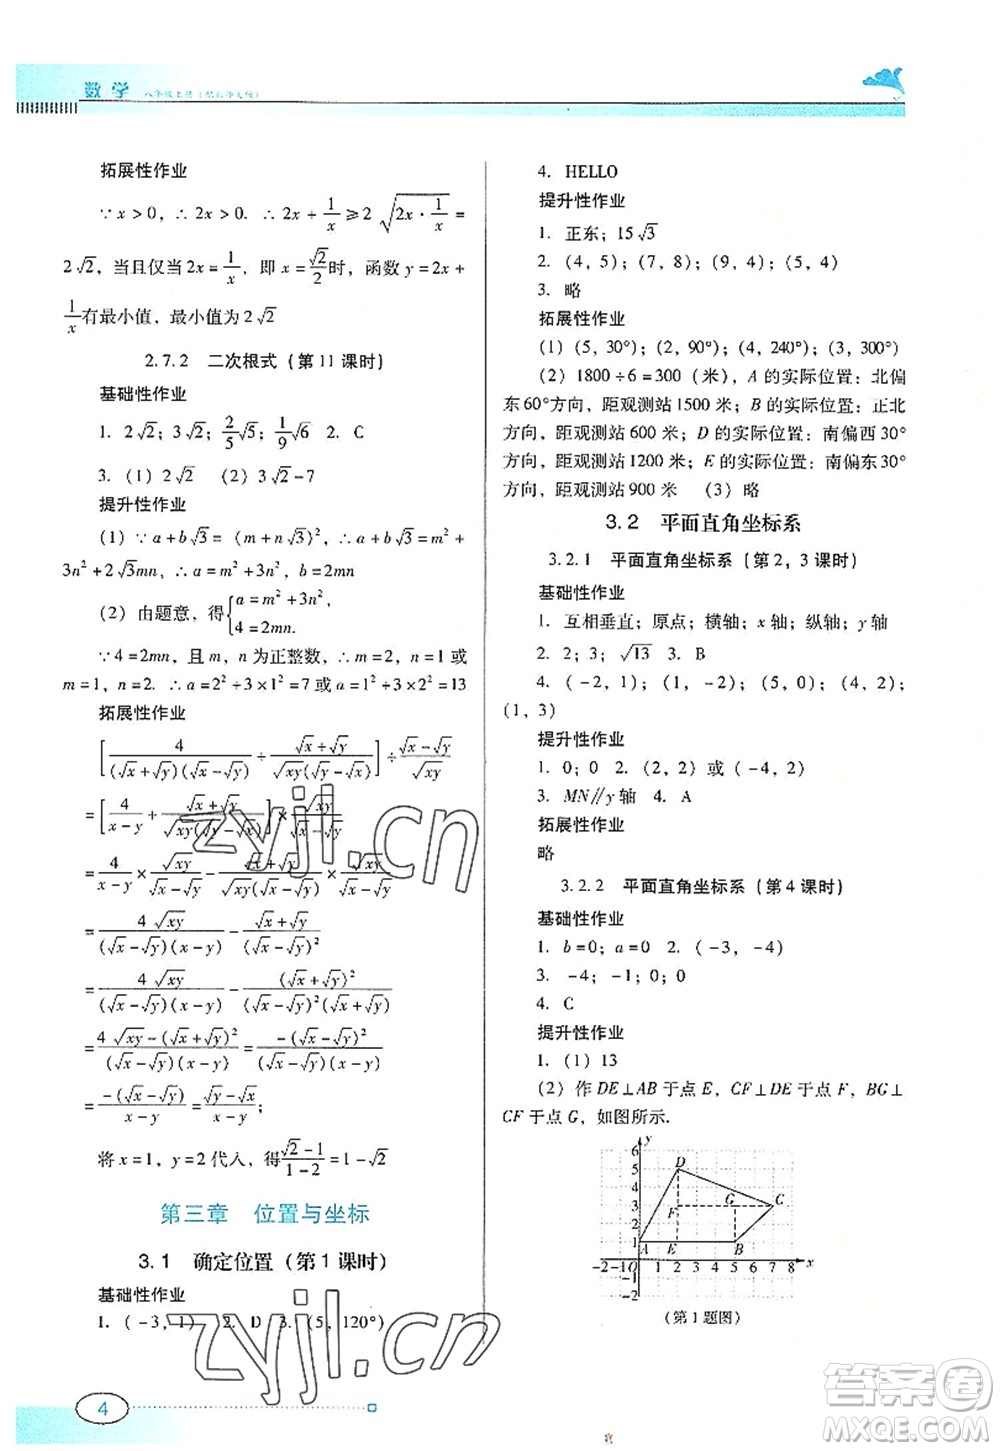 数学 八年级上册（配北师大版）
拓展性作业
∵x>0，∴2x>0. ∴2x+1/x⩾2√(2x·1/x)=
2√2，当且仅当2x=1/x，即x=√2/2时，函数y=2x+
1/x有最小值，最小值为2√2
2.7.2 二次根式（第11课时）
基础性作业
1. 2√2；3√2；2/5√5；1/9√6 2. C
3. （1）2√2 （2）3√2-7
提升性作业
（1）∵a+b√3=(m+n√3)²，∴a+b√3=m²+
3n²+2√3mn，∴a=m²+3n²，b=2mn
（2）由题意，得{a=m²+3n²，
4=2mn.
∵4=2mn，且m，n为正整数，∴m=2，n=1或
m=1，n=2. ∴a=2²+3×1²=7或a=1²+3×2²=13
拓展性作业
[4/((√x+√y)(√x-√y))÷(√x+√y)/(√xy(√y-√x))]÷(√x-√y)/√xy
=[4/(x-y)+(√x+√y)/(√xy(√y-√x))]×√xy/(√x-√y)
=4/(x-y)×√xy/(√x-√y)-(√x+√y)/(√xy(√x-√y))×√xy/(√x-√y)
=4√xy/((√x-√y)(x-y))-(√x+√y)/(√x-√y)²
=4√xy/((√x-√y)(x-y))-(√x+√y)²/((√x-√y)²(√x+√y))
=(4√xy-(√x+√y)²)/((√x-√y)(x-y))=-(√x-√y)²/((√x-√y)(x-y))
=-(√x-√y)/(x-y)；
将x=1，y=2代入，得(√2-1)/(1-2)=1-√2
第三章 位置与坐标
3.1 确定位置（第1课时）
基础性作业
1. （-3，1） 2. D 3. （5，120°）
4. HELLO
提升性作业
1. 正东；15√3
2. （4，5）；（7，8）；（9，4）；（5，4）
3. 略
拓展性作业
（1）（5，30°）；（2，90°）；（4，240°）；（3，300°）
（2）1800÷6=300（米），A的实际位置：北偏
东60°方向，距观测站1500米；B的实际位置：正北
方向，距观测站600米；D的实际位置：南偏西30°
方向，距观测站1200米；E的实际位置：南偏东30°
方向，距观测站900米 （3）略
3.2 平面直角坐标系
3.2.1 平面直角坐标系（第2，3课时）
基础性作业
1. 互相垂直；原点；横轴；x轴；纵轴；y轴
2. 2；3；√13 3. B
4. （-2，1）；（1，-2）；（5，0）；（4，2）；
（1，3）
提升性作业
1. 0；0 2. （2，2）或（-4，2）
3. MN∥y轴 4. A
拓展性作业
略
3.2.2 平面直角坐标系（第4课时）
基础性作业
1. b=0；a=0 2. （-3，-4）
3. -4；-1；0；0
4. C
提升性作业
1. （1）13
（2）作DE⊥AB于点E，CF⊥DE于点F，BG⊥
CF于点G，如图所示.
y
6
5
4
3
2
1
-1
-2
D
G
C
F
A
E
B
-2 -1 O 1 2 3 4 5 6 7 8 x
（第1题图）
4
zyjl.cn
zyjl.cn
答案圈
MXQE.COM